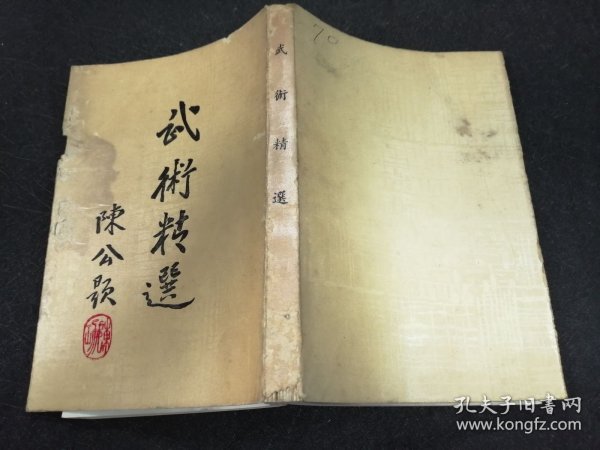 武術精選
陳公題
武術精選
70
孔夫子旧書网
www.kongfz.com